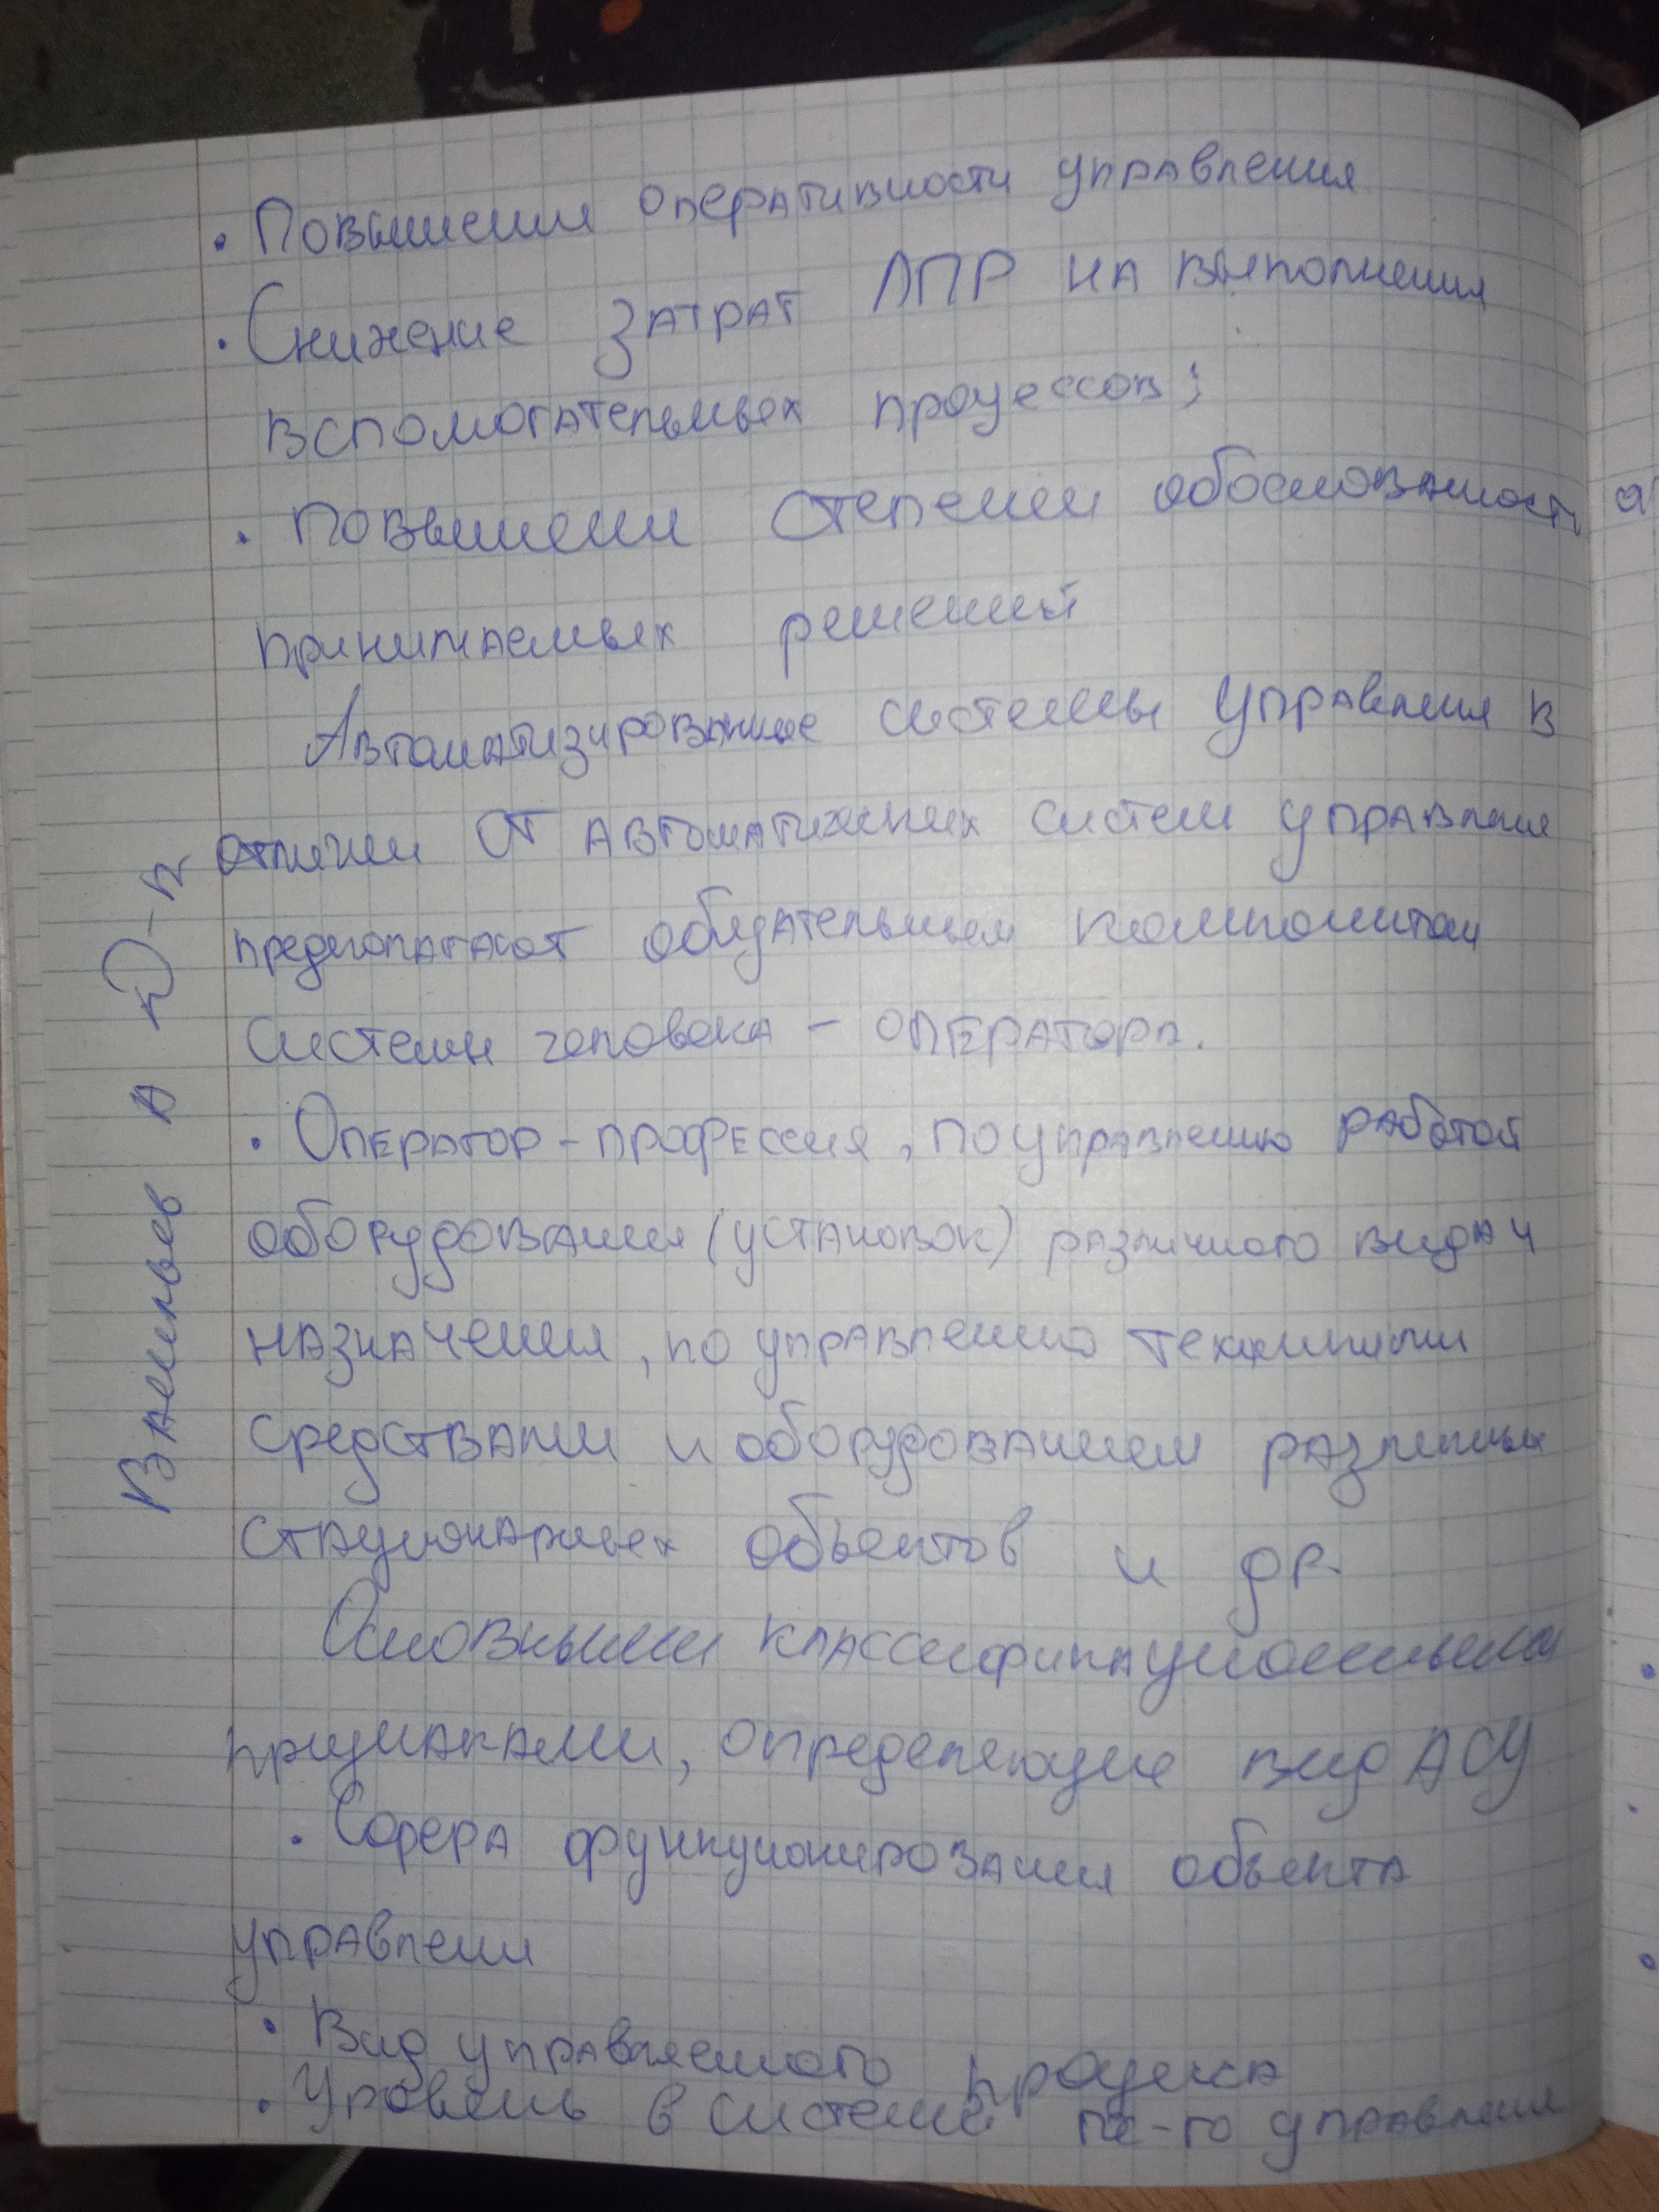 • Повышении оперативности управления
• Снижение затрат ЛПР на выполнения
вспомогательных процессов;
• Повышени степени обоснованности
принимаемых решений
Автоматизированные системы управления в
отличии от автоматических систем управления
предпологают обязательным компонентом
системы человека - оператора.
• Оператор - профессия, по управлению работой
оборудования (установок) различного вида и
назначения, по управлению техническими
средствами и оборудованием различных
стационарных объектов и др.
Основными классификационными
признаками, определяющие вид АСУ
• Сфера функционирования объекта
управлени
• Вид управляемого процесса
• Уровень в системе го управления
Васильев А